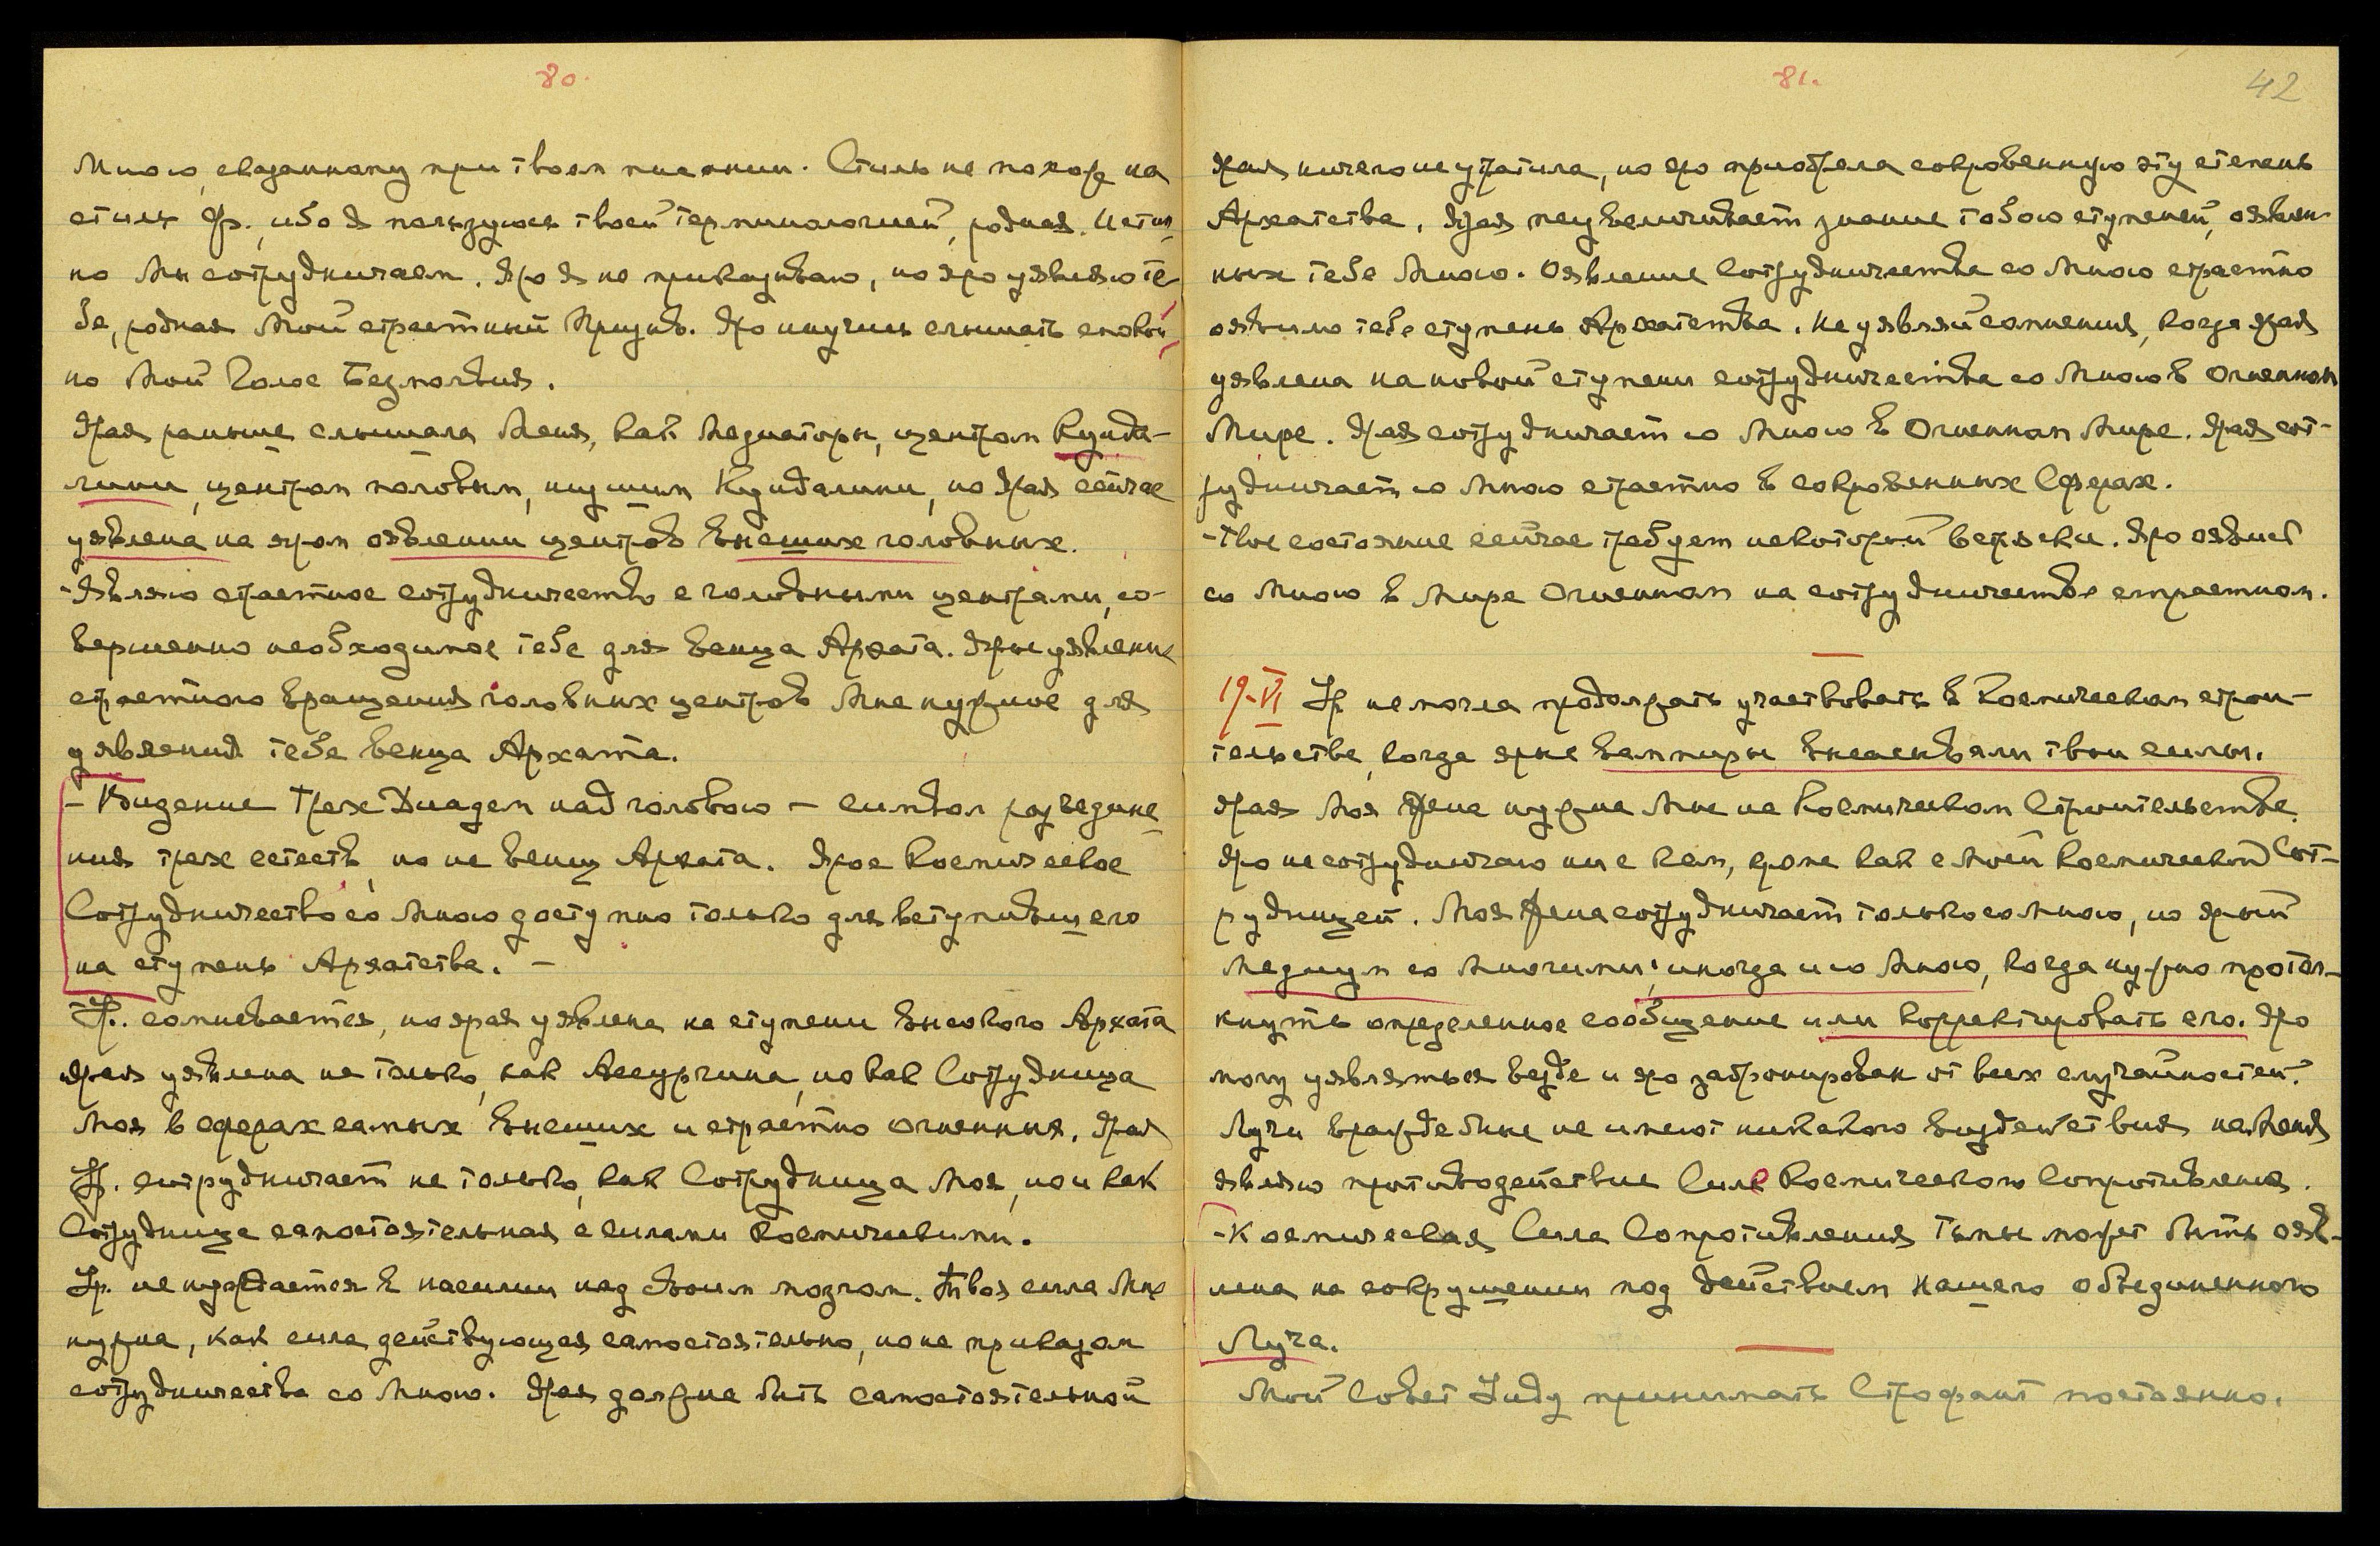 80.
Мною, сказанному при твоем писании. Стиль не похож на
стиль Ур., ибо Я пользуюсь твоей терминологией, родная. Истин-
но Мы сотрудничаем. Яро Я не приказываю, но яро уявляю те-
бе, родная Мой страстный Призыв. Яро научись слышать спокой-
но Мой Голос Безмолвия.
Ярая раньше слышала Меня, как Медиаторы, центром Кунда-
лини, центром половым, низшим Кундалини, но Ярая сейчас
уявлена на яром оявлении центров Высших головных.
- Являю страстное сотрудничество с головными центрами, со-
вершенно необходимое тебе для венца Архата. Ярые уявления
страстного вращения головных центров Мне нужное для
уявления тебе Венца Архата.
- Видение Трех Диадем над головою — символ разъедине-
ния трех естеств, но не венец Архата. Ярое Космическое
Сотрудничество со Мною доступно только для вступившего
на ступень Архатства. —
Ур. сомневается, но ярая уявлена на ступени Высокого Архата
ярая уявлена не только, как Ассургина, но как Сотрудница
Моя в сферах самых Высших и страстно огненных. Ярая
Ур. сотрудничает не только, как Сотрудница Моя, но и как
Сотрудница самостоятельная с силами Космическими.
Ур. не нуждается в насилии над своим мозгом. Твоя сила Мне
нужна, как сила действующая самостоятельно, но не приказом
сотрудничества со Мною. Ярая должна быть самостоятельной
81.
42
Ярая ничего не утратила, но яро приобрела сокровенную эту степень
Архатства. Ярая преувеличивает знание тобою ступеней, оявлен-
ных тебе Мною. Оявление Сотрудничества со Мною страстно
оявило тебе ступень Архатства. Не уявляй сомнения, когда ярая
уявлена на новой ступени сотрудничества со Мною в Огненном
Мире. Ярая сотрудничает со Мною в Огненном Мире. Ярая сот-
рудничает со Мною страстно в сокровенных Сферах.
- Твое состояние сейчас требует некоторой встряски. Яро оявись
со Мною в Мире Огненном на сотрудничестве страстном.
19-VI Ур. не могла продолжать участвовать в Космическом строи-
тельстве, когда ярые вампиры высасывали твои силы.
Ярая Моя Жена нужна Мне на Космическом Строительстве.
Яро не сотрудничаю ни с кем, кроме как с Моей Космической Сот-
рудницей. Моя Жена сотрудничает только со Мною, но ярый
Медиум со Многими, иногда и со Мною, когда нужно протол-
кнуть определенное сообщение или корректировать его. Яро
могу уявляться везде и яро забронирован от всех случайностей.
Лучи враждебные не имеют никакого воздействия на Меня
являю противодействие Силе Космического Сопротивления.
- Космическая Сила Сопротивления Тьмы может быть ояв-
лена на сокрушении под действием Нашего объединенного
Луча.
Мой Совет Зиду принимать Строфант постоянно.